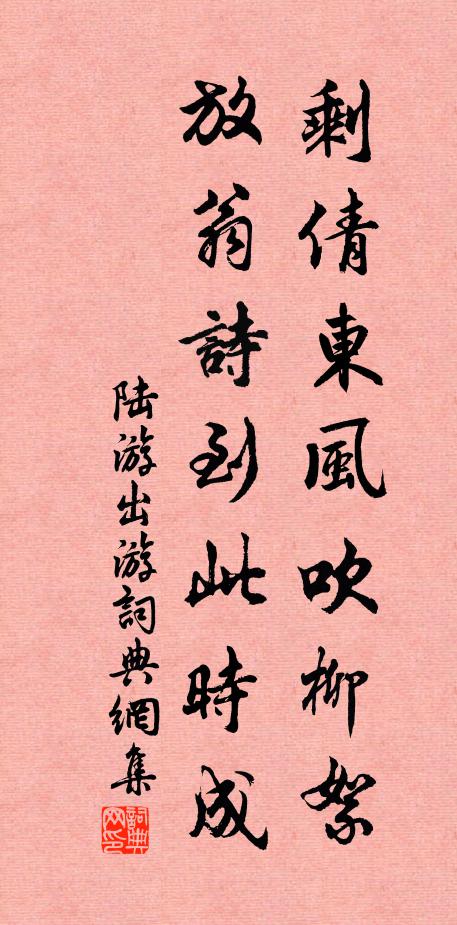 剩倩東風吹柳絮
放翁詩到此時成
陸游出游詞典網集
詞典网印